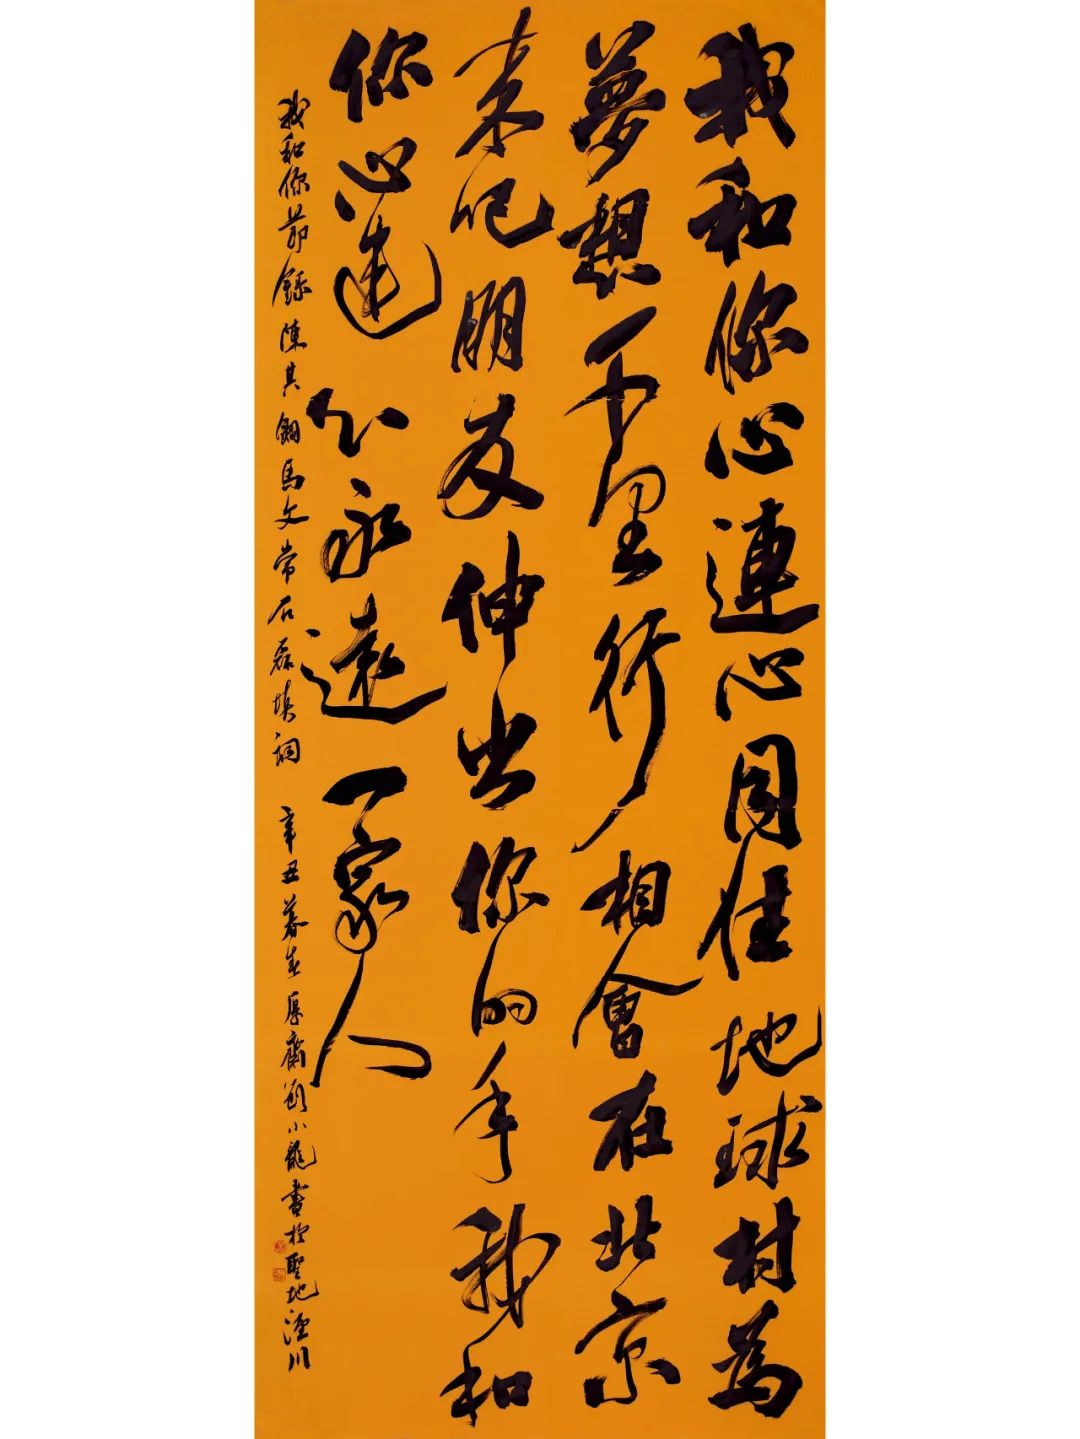 我和你心連心同住地球村為
夢想千里行相會在北京
来吧朋友伸出你的手我和
你心連心永遠一家人
我和你節錄陳其鋼馬文常石磊填詞 辛丑暮春厚齋顧小龍書於聖地涇川